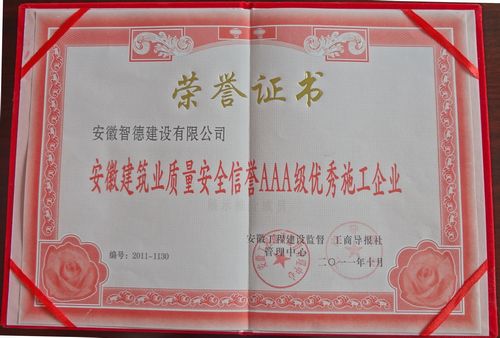 荣誉证书
安徽智德建设有限公司
安徽建筑业质量安全信誉AAA级优秀施工企业
安徽工程建设监督 工商导报社
管理中心
编号：2011-1130
二〇一一年十月